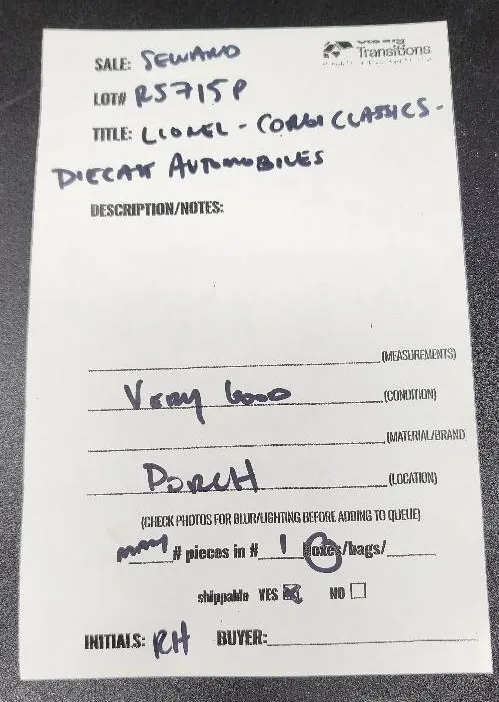 Transitions
SALE: SEWARD
LOT# RS715P
TITLE: LIONEL - CORGI CLASSICS -
DIECAST AUTOMOBILES
DESCRIPTION/NOTES:
(MEASUREMENTS)
Very Good (CONDITION)
(MATERIAL/BRAND
PORCH (LOCATION)
(CHECK PHOTOS FOR BLUR/LIGHTING BEFORE ADDING TO QUEUE)
many # pieces in # 1 boxes/bags/
shippable YES NO
INITIALS: RH BUYER: